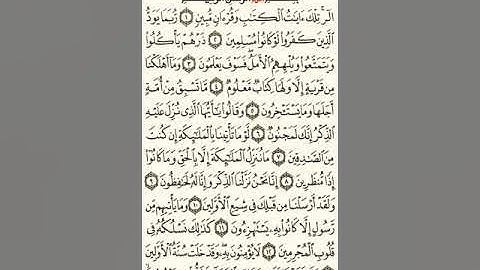 الٓرۚ تِلْكَ ءَايَٰتُ ٱلْكِتَٰبِ وَقُرْءَانٍ مُّبِينٍ ١ رُّبَمَا يَوَدُّ
ٱلَّذِينَ كَفَرُوا۟ لَوْ كَانُوا۟ مُسْلِمِينَ ٢ ذَرْهُمْ يَأْكُلُوا۟
وَيَتَمَتَّعُوا۟ وَيُلْهِهِمُ ٱلْأَمَلُۖ فَسَوْفَ يَعْلَمُونَ ٣ وَمَآ أَهْلَكْنَا
مِن قَرْيَةٍ إِلَّا وَلَهَا كِتَابٌ مَّعْلُومٌ ٤ مَّا تَسْبِقُ مِنْ أُمَّةٍ
أَجَلَهَا وَمَا يَسْتَـْٔخِرُونَ ٥ وَقَالُوا۟ يَٰٓأَيُّهَا ٱلَّذِى نُزِّلَ عَلَيْهِ
ٱلذِّكْرُ إِنَّكَ لَمَجْنُونٌ ٦ لَّوْ مَا تَأْتِينَا بِٱلْمَلَٰٓئِكَةِ إِن كُنتَ
مِنَ ٱلصَّٰدِقِينَ ٧ مَا نُنَزِّلُ ٱلْمَلَٰٓئِكَةَ إِلَّا بِٱلْحَقِّ وَمَا كَانُوٓا۟
إِذًا مُّنظَرِينَ ٨ إِنَّا نَحْنُ نَزَّلْنَا ٱلذِّكْرَ وَإِنَّا لَهُۥ لَحَٰفِظُونَ ٩
وَلَقَدْ أَرْسَلْنَا مِن قَبْلِكَ فِى شِيَعِ ٱلْأَوَّلِينَ ١٠ وَمَا يَأْتِيهِم مِّن
رَّسُولٍ إِلَّا كَانُوا۟ بِهِۦ يَسْتَهْزِءُونَ ١١ كَذَٰلِكَ نَسْلُكُهُۥ فِى
قُلُوبِ ٱلْمُجْرِمِينَ ١٢ لَا يُؤْمِنُونَ بِهِۦ وَقَدْ خَلَتْ سُنَّةُ ٱلْأَوَّلِينَ